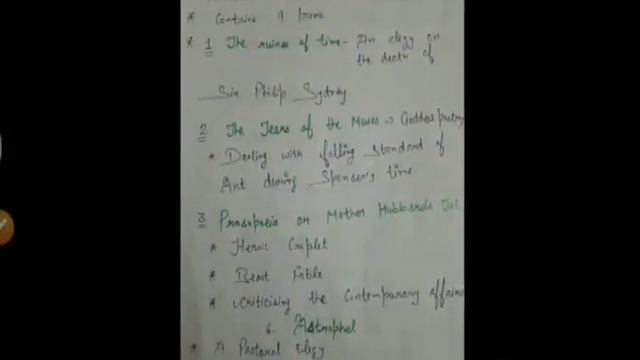 * Contains 9 Poems
* 1 The ruines of time - An elegy on
the death of
Sir Philip Sydney
2 The Tears of the Muses → Goddess poetry
* Dealing with falling standard of
Art during Spenser's time
3 Prosopoeia or Mother Hubberds Tal
* Heroic Couplet
* Beast Fable
* Criticising the Contemporary affairs
6. Astrophel
* A Pastoral Elegy